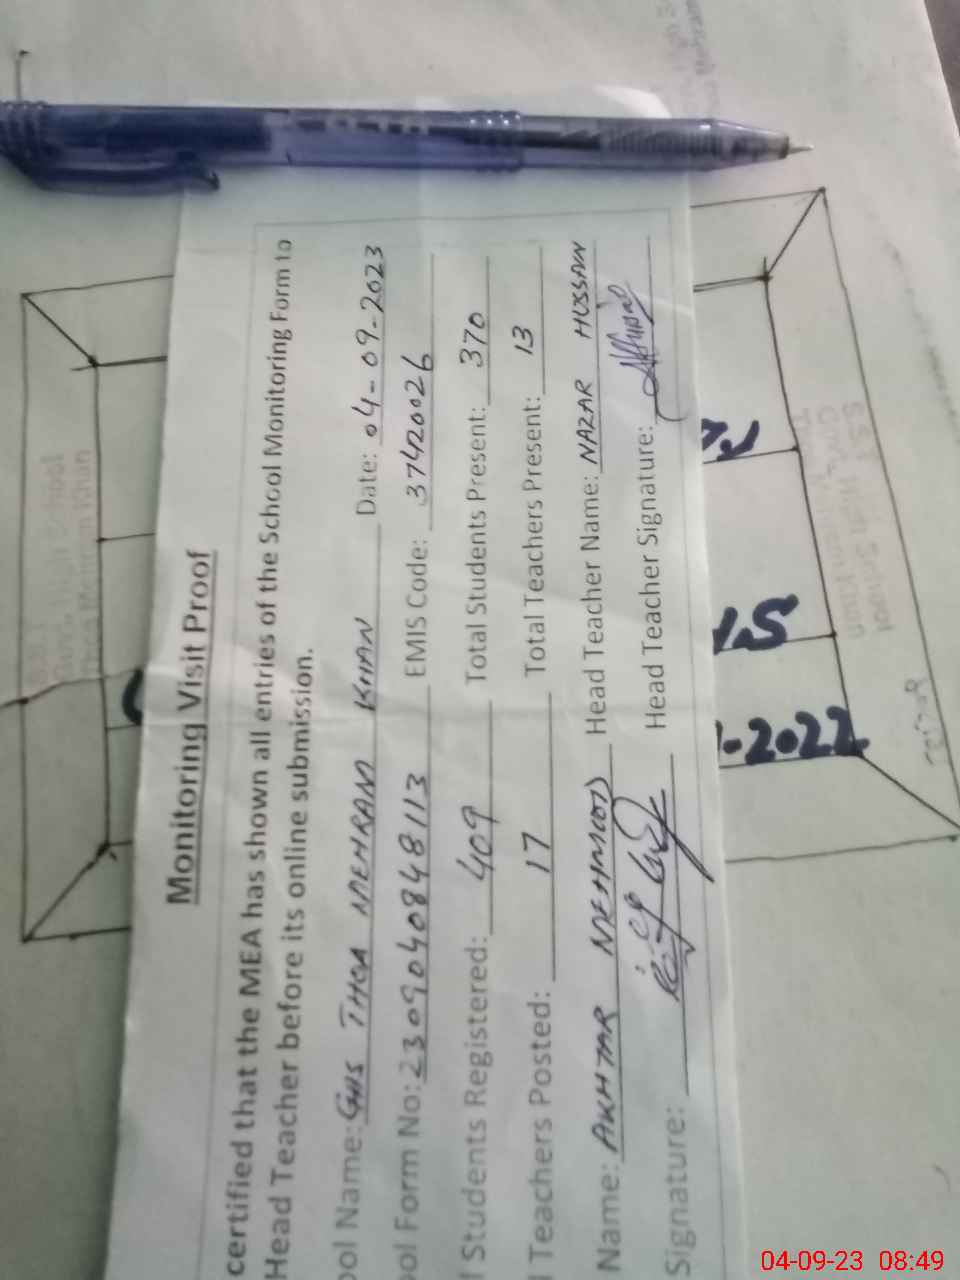 Monitoring Visit Proof
certified that the MEA has shown all entries of the School Monitoring Form to
Head Teacher before its online submission.
ool Name: GHS THOA MEHRAM KHAN Date: 04-09-2023
ool Form No: 2309040848113 EMIS Code: 37420026
l Students Registered: 409 Total Students Present: 370
l Teachers Posted: 17 Total Teachers Present: 13
Name: AKHTAR MEHMOOD Head Teacher Name: NAZAR HUSSAIN
Signature: Head Teacher Signature:
.2022
04-09-23 08:49